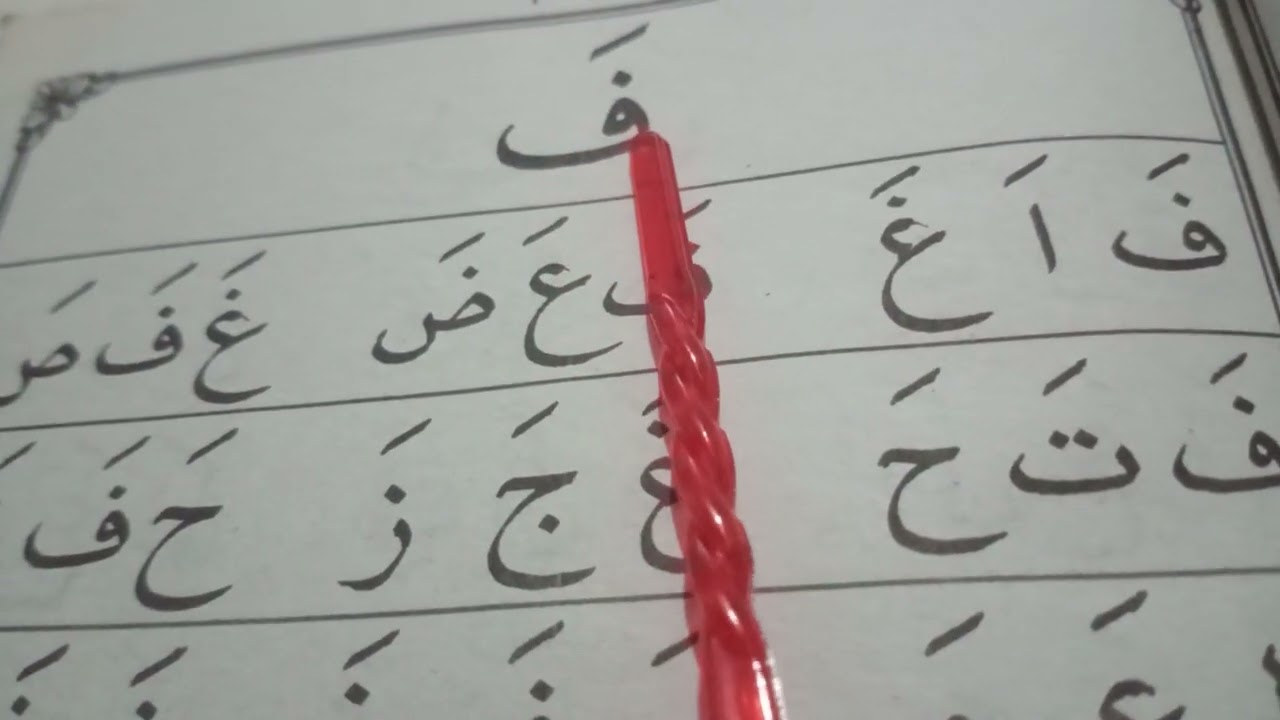 فَ
فَ اَ غَ فَ عَ ضَ غَ فَ صَ
فَ تَ حَ غَ جَ زَ حَ فَ